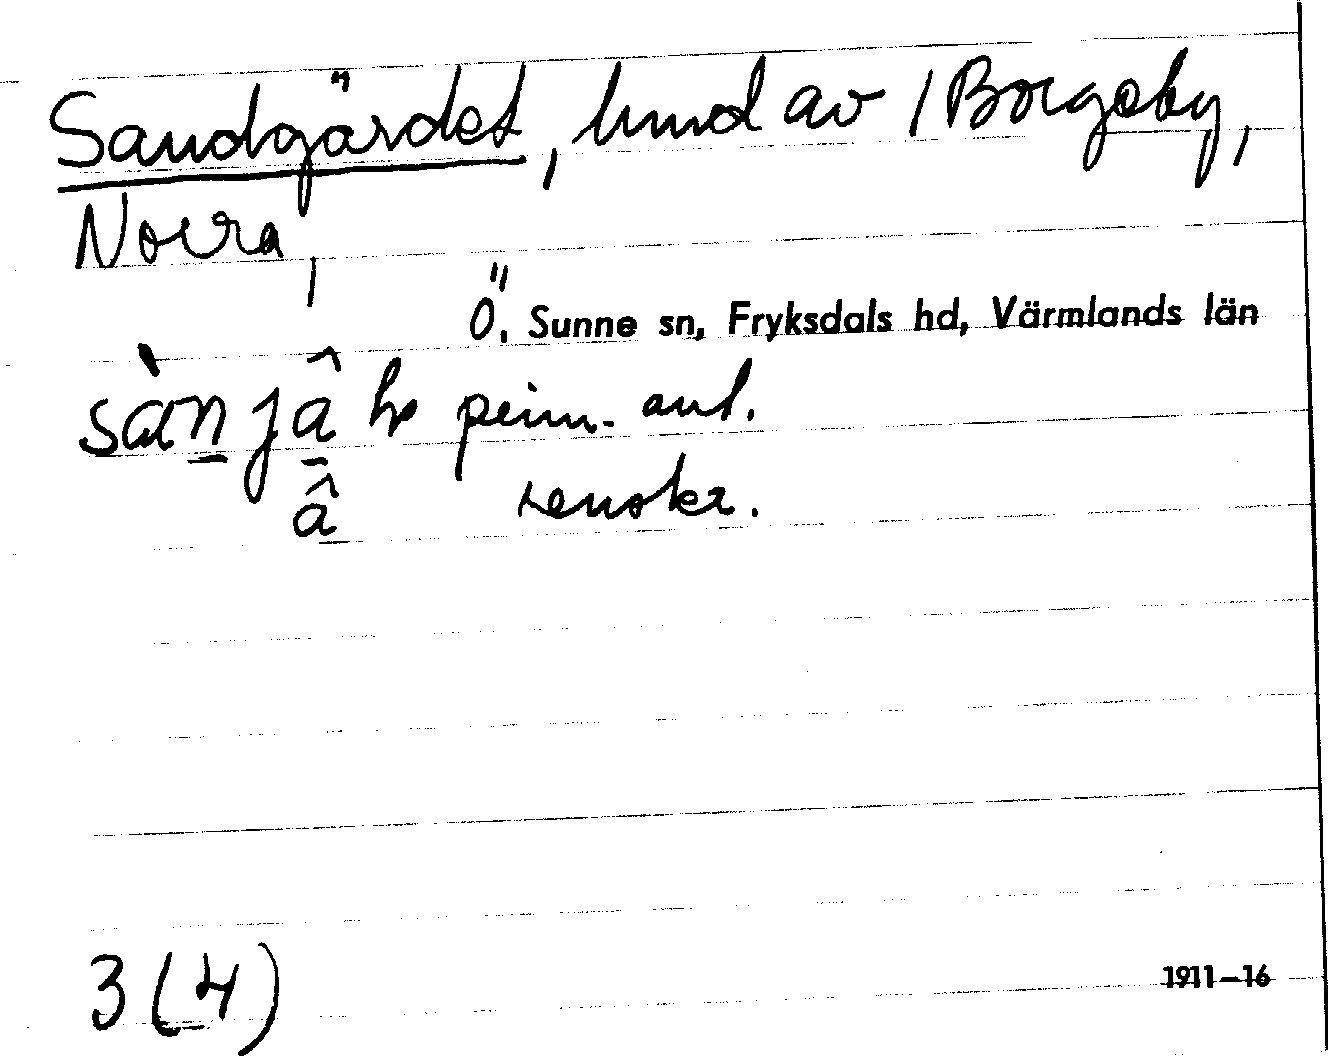 Sandgärdet, hmd av /Borgeby,
Norra,
Ö. Sunne sn, Fryksdals hd, Värmlands län
sàn jâ
primäranl.
â renskr.
3 (4)
1911–16